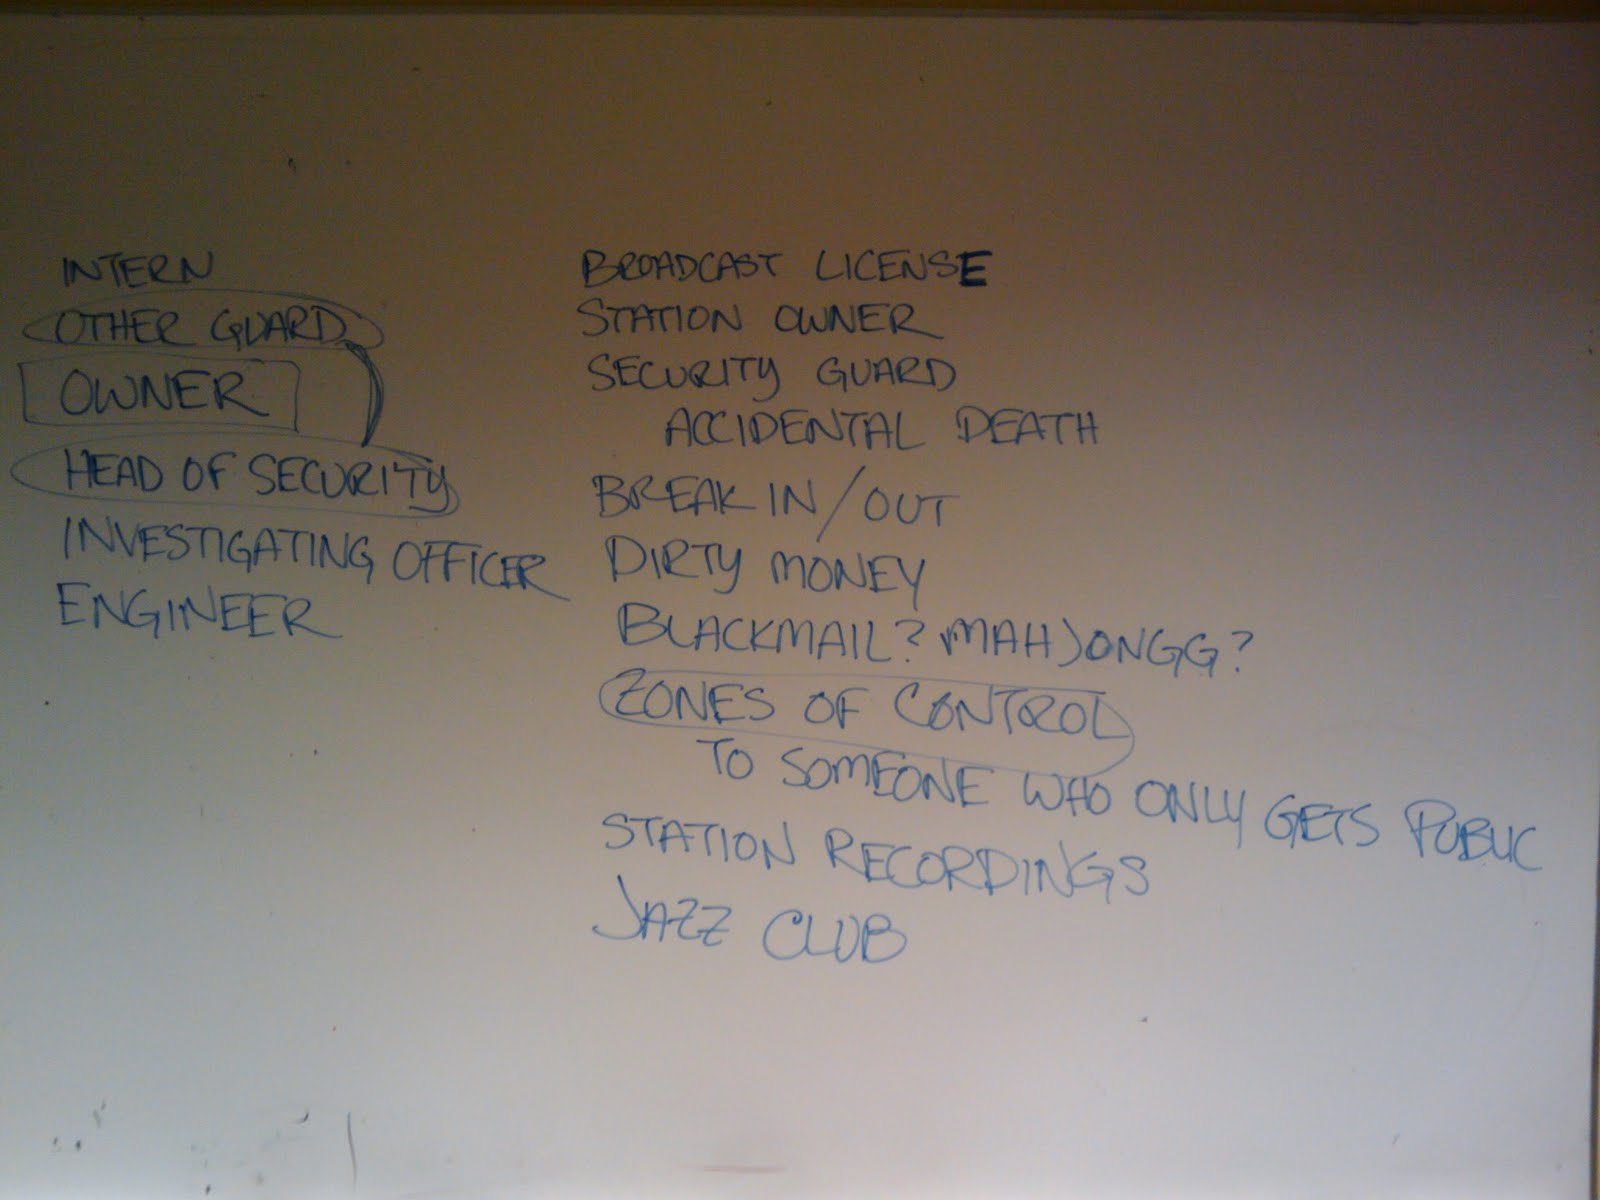 INTERN
OTHER GUARD
OWNER
HEAD OF SECURITY
INVESTIGATING OFFICER
ENGINEER
BROADCAST LICENSE
STATION OWNER
SECURITY GUARD
ACCIDENTAL DEATH
BREAK IN/OUT
DIRTY MONEY
BLACKMAIL? MAHJONGG?
ZONES OF CONTROL
TO SOMEONE WHO ONLY GETS PUBLIC
STATION RECORDINGS
JAZZ CLUB